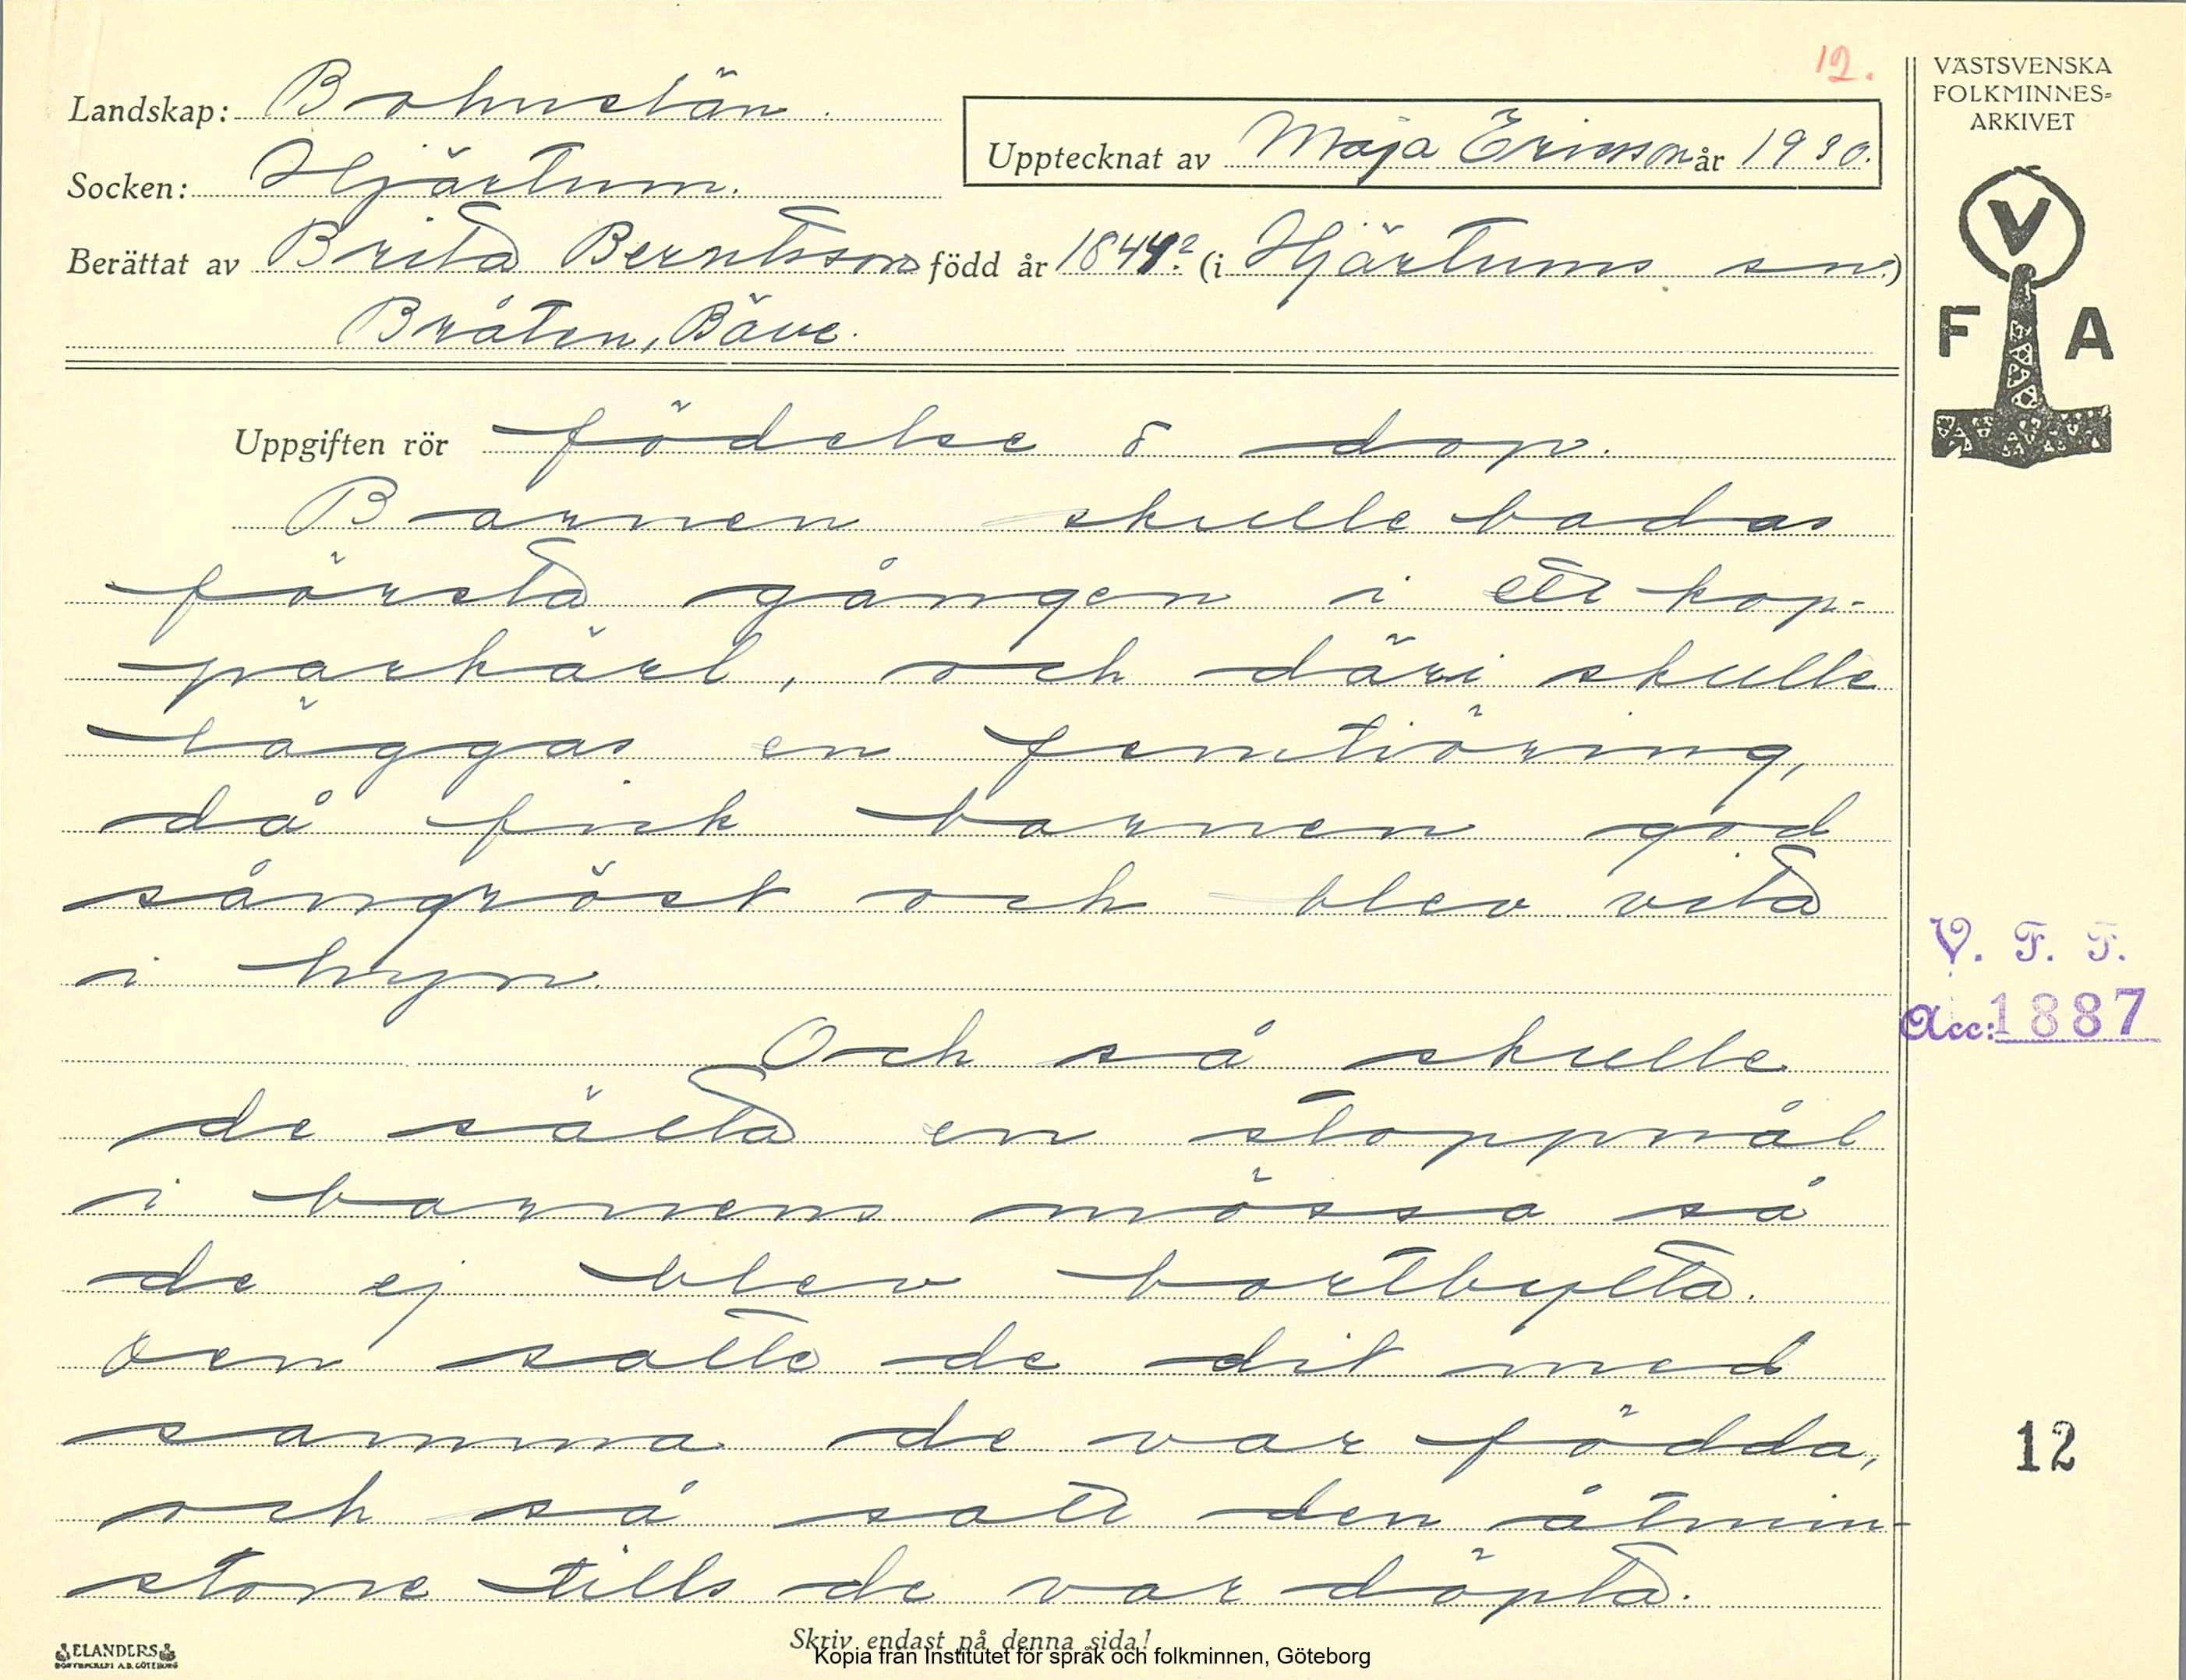 12.
Landskap: Bohuslän.
Socken: Hjärtum.
Upptecknat av Maja Ericsson år 1930.
Berättat av Brita Berntsson född år 1844? (i Hjärtums sn.)
Bråten, Bäve.
Uppgiften rör födelse & dop.
Barnen skulle badas
första gången i ett kop-
parkärl, och däri skulle
läggas en femtiöring,
då fick barnen god
sångröst och blev vita
i hyn.
Och så skulle
de sätta en stoppnål
i barnens mössa så
de ej blev bortbytta.
Den satte de dit med
samma de var födda,
och så satt den åtmin-
stone tills de var döpta.
Skriv endast på denna sida!
Kopia från Institutet för språk och folkminnen, Göteborg
ELANDERS
BOKTRYCKERI A.B. GÖTEBORG
VÄSTSVENSKA
FOLKMINNES-
ARKIVET
V
F A
V. F. F.
Acc: 1887
12